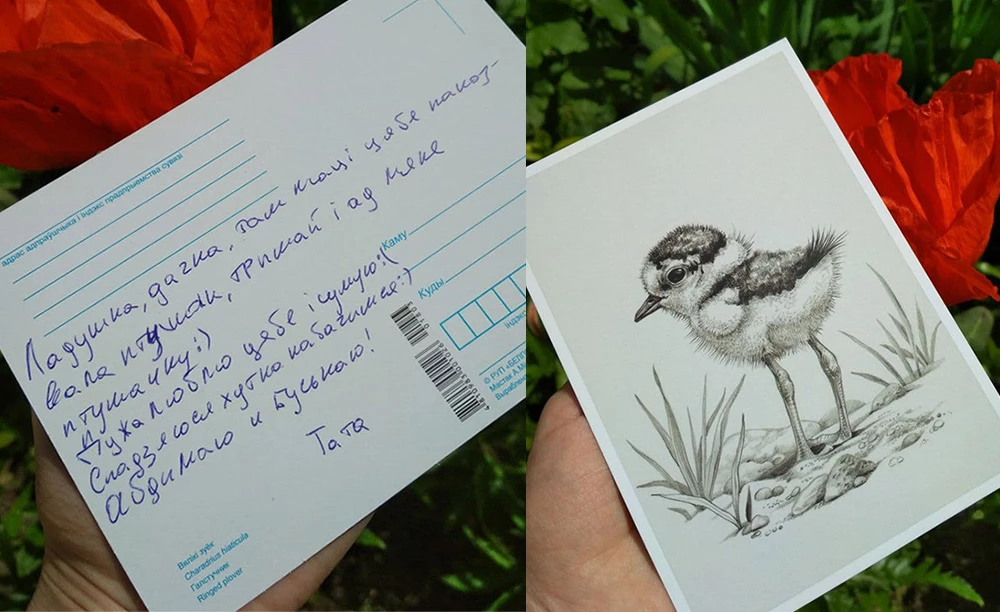 адрас адпраўшчыка і індэкс прадпрыемства сувязі
Ладушка, дачка, там ночі цябе паказ-
вала птушак, трымай і ад мяне
птушачку:)
Дужа люблю цябе і сумую:(
Спадзяюся хутка пабачымся:)
Абдымаю и Буськаю!
Тата
Каму
Куды
індэкс
© РУП «БЕЛП
Мастак А.М
Выраблен
Вялікі зуёк
Charadrius hiaticula
Галстучник
Ringed plover